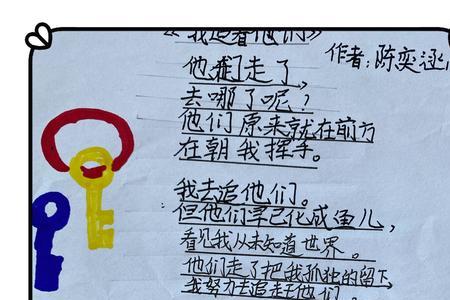 《我追着他们》
作者:陈奕逐
他们走了,
去哪了呢?
他们原来就在前方
在朝我挥手。
我去追他们。
但他们早已化成鱼儿,
看见我从未知道世界。
他们走了把我孤独的留下
我努力去追赶他们。